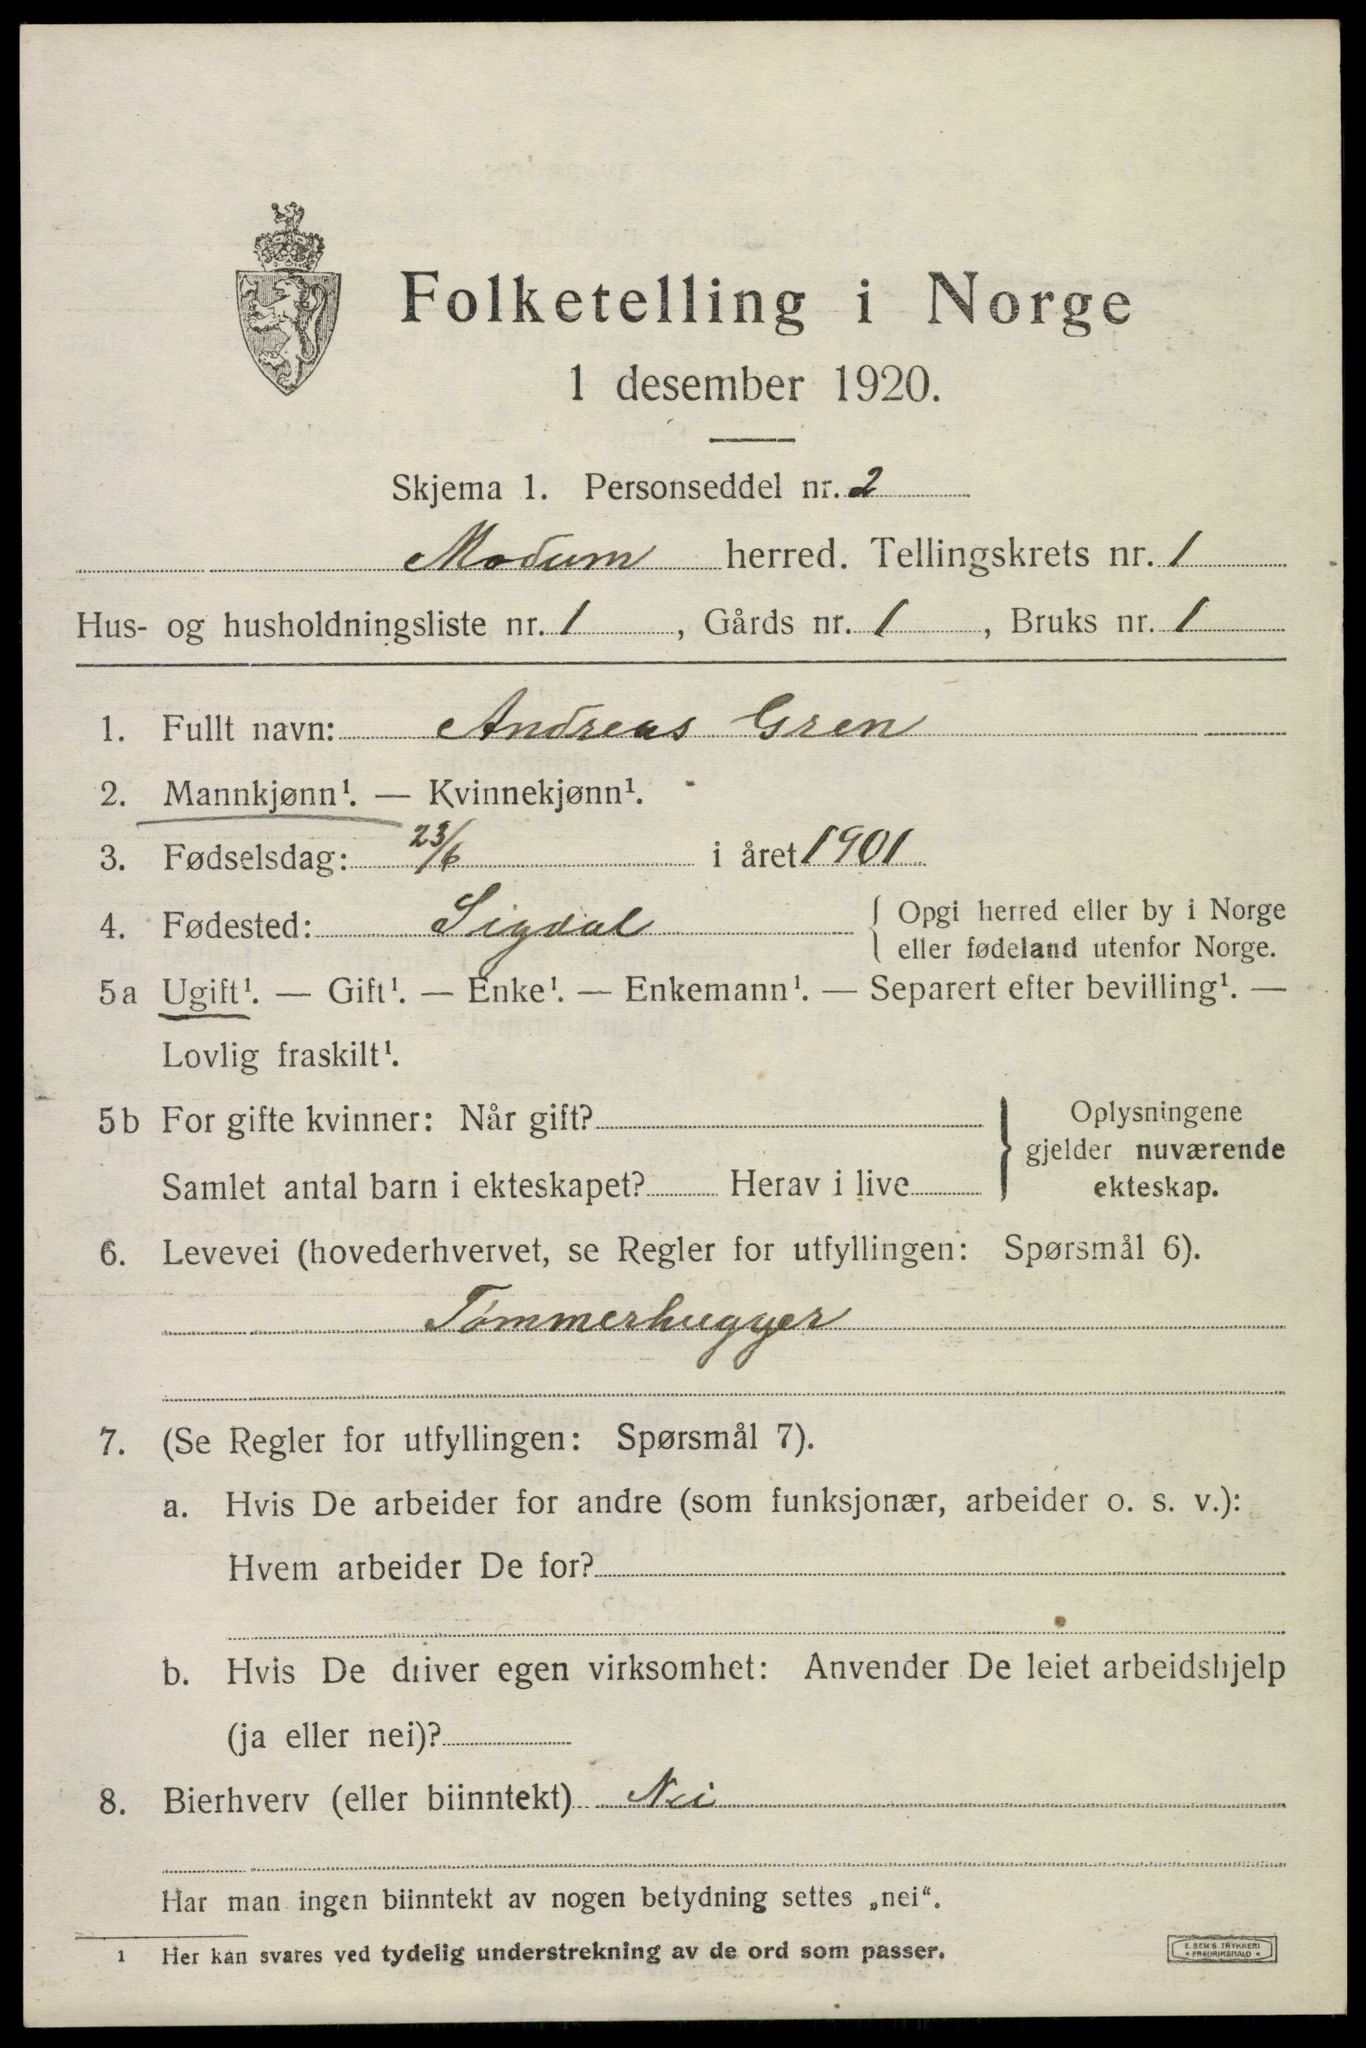 Folketelling i Norge
1 desember 1920.
Skjema 1. Personseddel nr. 2
Modum herred. Tellingskrets nr. 1
Hus- og husholdningsliste nr. 1, Gårds nr. 1, Bruks nr. 1
1. Fullt navn: Andreas Gren
2. Mannkjønn¹. — Kvinnekjønn¹.
3. Fødselsdag: 23/6 i året 1901
4. Fødested: Sigdal { Opgi herred eller by i Norge
eller fødeland utenfor Norge.
5a Ugift¹. — Gift¹. — Enke¹. — Enkemann¹. — Separert efter bevilling¹. —
Lovlig fraskilt¹.
5b For gifte kvinner: Når gift?
Samlet antal barn i ekteskapet? Herav i live
} Oplysningene
gjelder nuværende
ekteskap.
6. Levevei (hovederhvervet, se Regler for utfyllingen: Spørsmål 6).
Tømmerhugger
7. (Se Regler for utfyllingen: Spørsmål 7).
a. Hvis De arbeider for andre (som funksjonær, arbeider o. s. v.):
Hvem arbeider De for?
b. Hvis De driver egen virksomhet: Anvender De leiet arbeidshjelp
(ja eller nei)?
8. Bierhverv (eller biinntekt) Nei
Har man ingen biinntekt av nogen betydning settes „nei“.
1 Her kan svares ved tydelig understrekning av de ord som passer.
E. SEM'S TRYKKERI
* FREDRIKSHALD *